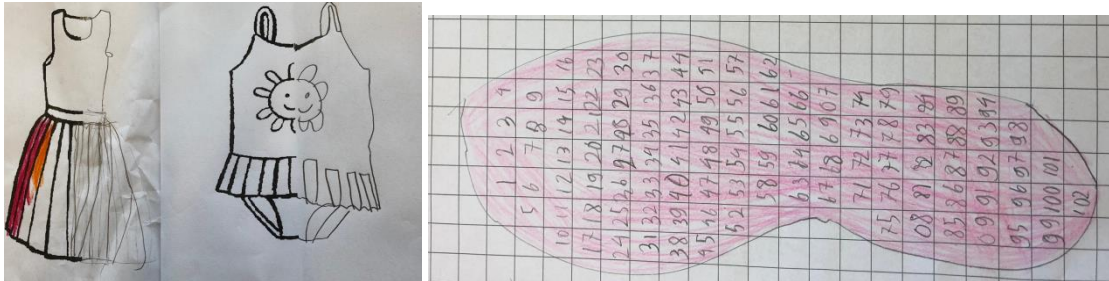 1 2 3 4
5 6 7 8 9
10 11 12 13 14 15 16
17 18 19 20 21 22 23
24 25 26 27 28 29 30
31 32 33 34 35 36 37
38 39 40 41 42 43 44
45 46 47 48 49 50 51
52 53 54 55 56 57
58 59 60 61 62
63 64 65 66
67 68 69 70
71 72 73 74
75 76 77 78 79
80 81 82 83 84
85 86 87 88 89
90 91 92 93 94
95 96 97 98
99 100 101
102